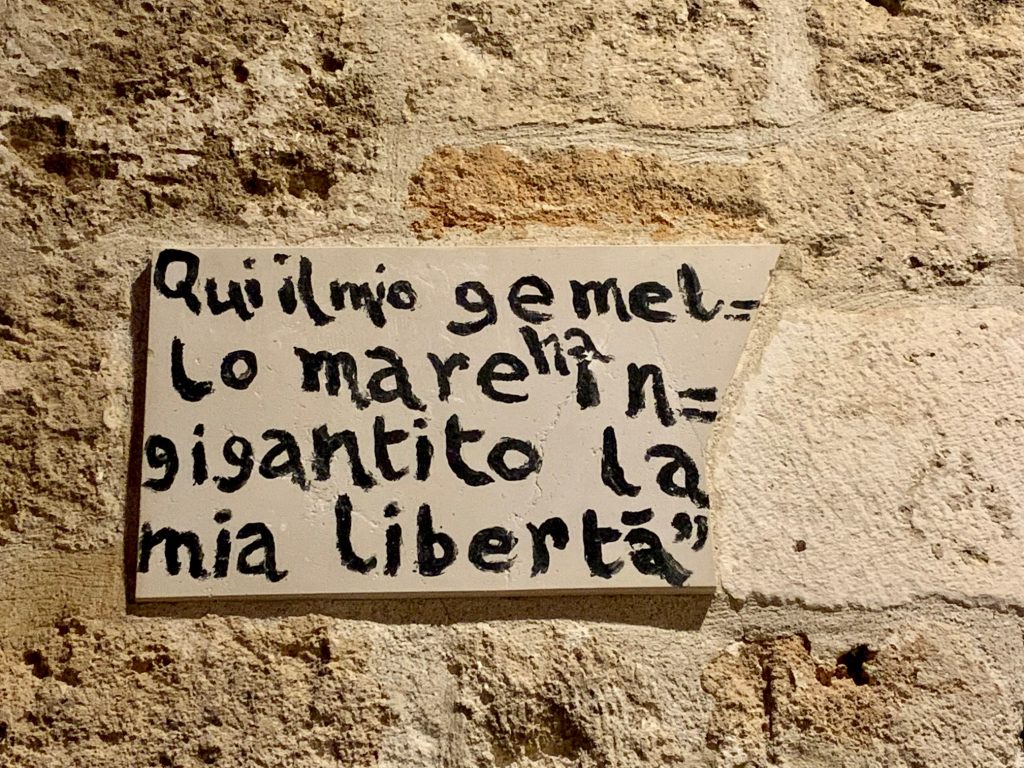 Qui il mio gemel=
lo mare ha in=
gigantito la
mia libertà”